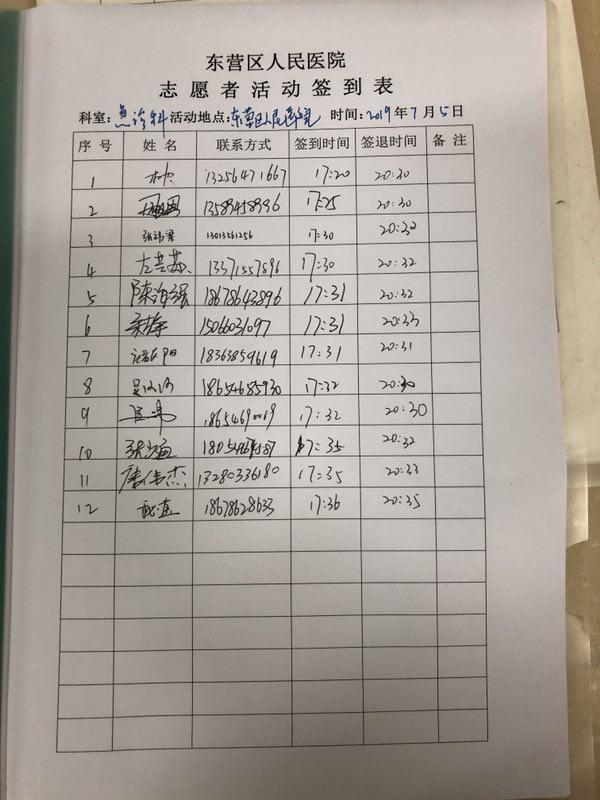 东营区人民医院
志愿者活动签到表
科室:急诊科 活动地点:东营区人民医院 时间:2019年7月5日
序号 姓名 联系方式 签到时间 签退时间 备注
1 13256471667 17:20 20:30
2 13589458996 17:25 20:30
3 13013561256 17:30 20:32
4 13371557896 17:30 20:32
5 陈海强 18678643896 17:31 20:32
6 15066031097 17:31 20:33
7 18363859619 17:31 20:31
8 18654685930 17:32 20:30
9 17:32 20:30
10 17:35 20:32
11 13280336180 17:35 20:33
12 18678628633 17:36 20:35